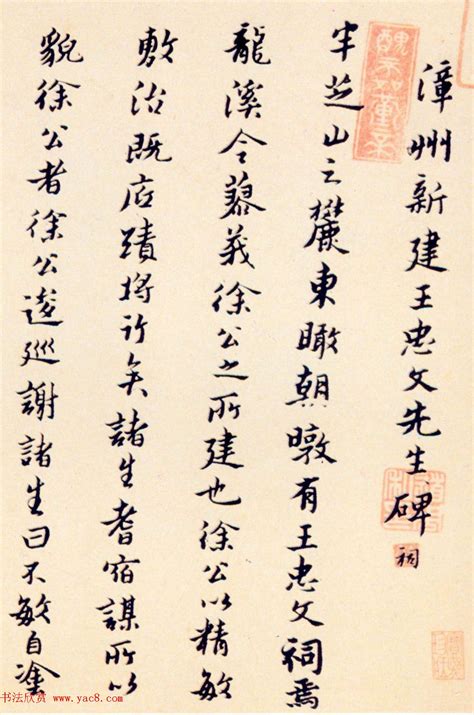 漳州新建王忠文先生碑
祠
半芝山之麓東瞰朝暾有王忠文祠焉
龍溪令蓼莪徐公之所建也徐公以精敏
敷治既底蹟將行矣諸生耆宿謀所以
貌徐公者徐公逡巡謝諸生曰不敏自塗
书法欣赏 www.yac8.com